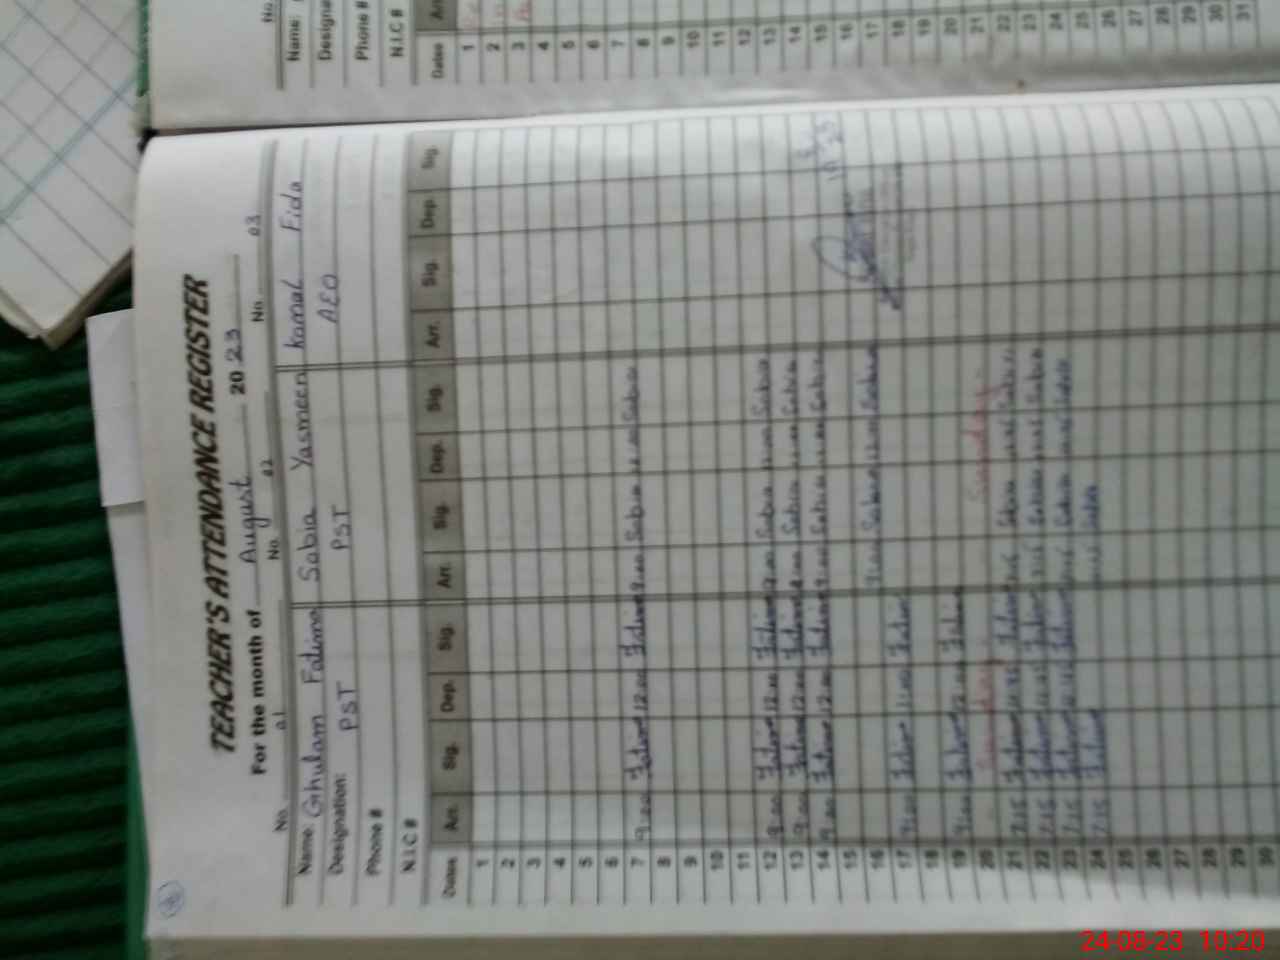 TEACHER'S ATTENDANCE REGISTER
For the month of August 2023
No. 01 No. 02 No. 03
Name: Ghulam Fatima Sabia Yasmeen Kamal Fida
Designation: PST PST AEO
Phone #
N.I.C #
Dates Arr. Sig. Dep. Sig. Arr. Sig. Dep. Sig. Arr. Sig. Dep. Sig.
1
2
3
4
5
6
7 9:00 Fatima 12:00 Fatima 9:00 Sabia Sabia
8
9
10
11
12 9:00 Fatima 12:00 Fatima 9:00 Sabia Sabia
13 9:00 Fatima 12:00 Fatima 9:00 Sabia Sabia
14 9:00 Fatima 12:00 Fatima 9:00 Sabia Sabia
15
16 9:00 Sabia 12:00 Sabia
17 9:00 Fatima 12:00 Fatima
18
19 9:00 Fatima 12:00 Fatima
20 Sunday Sunday
21 7:15 Fatima Fatima 7:15 Sabia Sabia
22 7:15 Fatima Fatima 7:15 Sabia Sabia
23 7:15 Fatima Fatima 7:15 Sabia Sabia
24 7:15 Fatima Sabia
25
26
27
28
29
30
No.
Name:
Phone #
N.I.C #
Dates
1
2
3
4
5
6
7
8
9
10
11
12
13
14
15
16
17
18
19
20
21
22
23
24
25
26
27
28
29
30
31
24-08-23 10:20